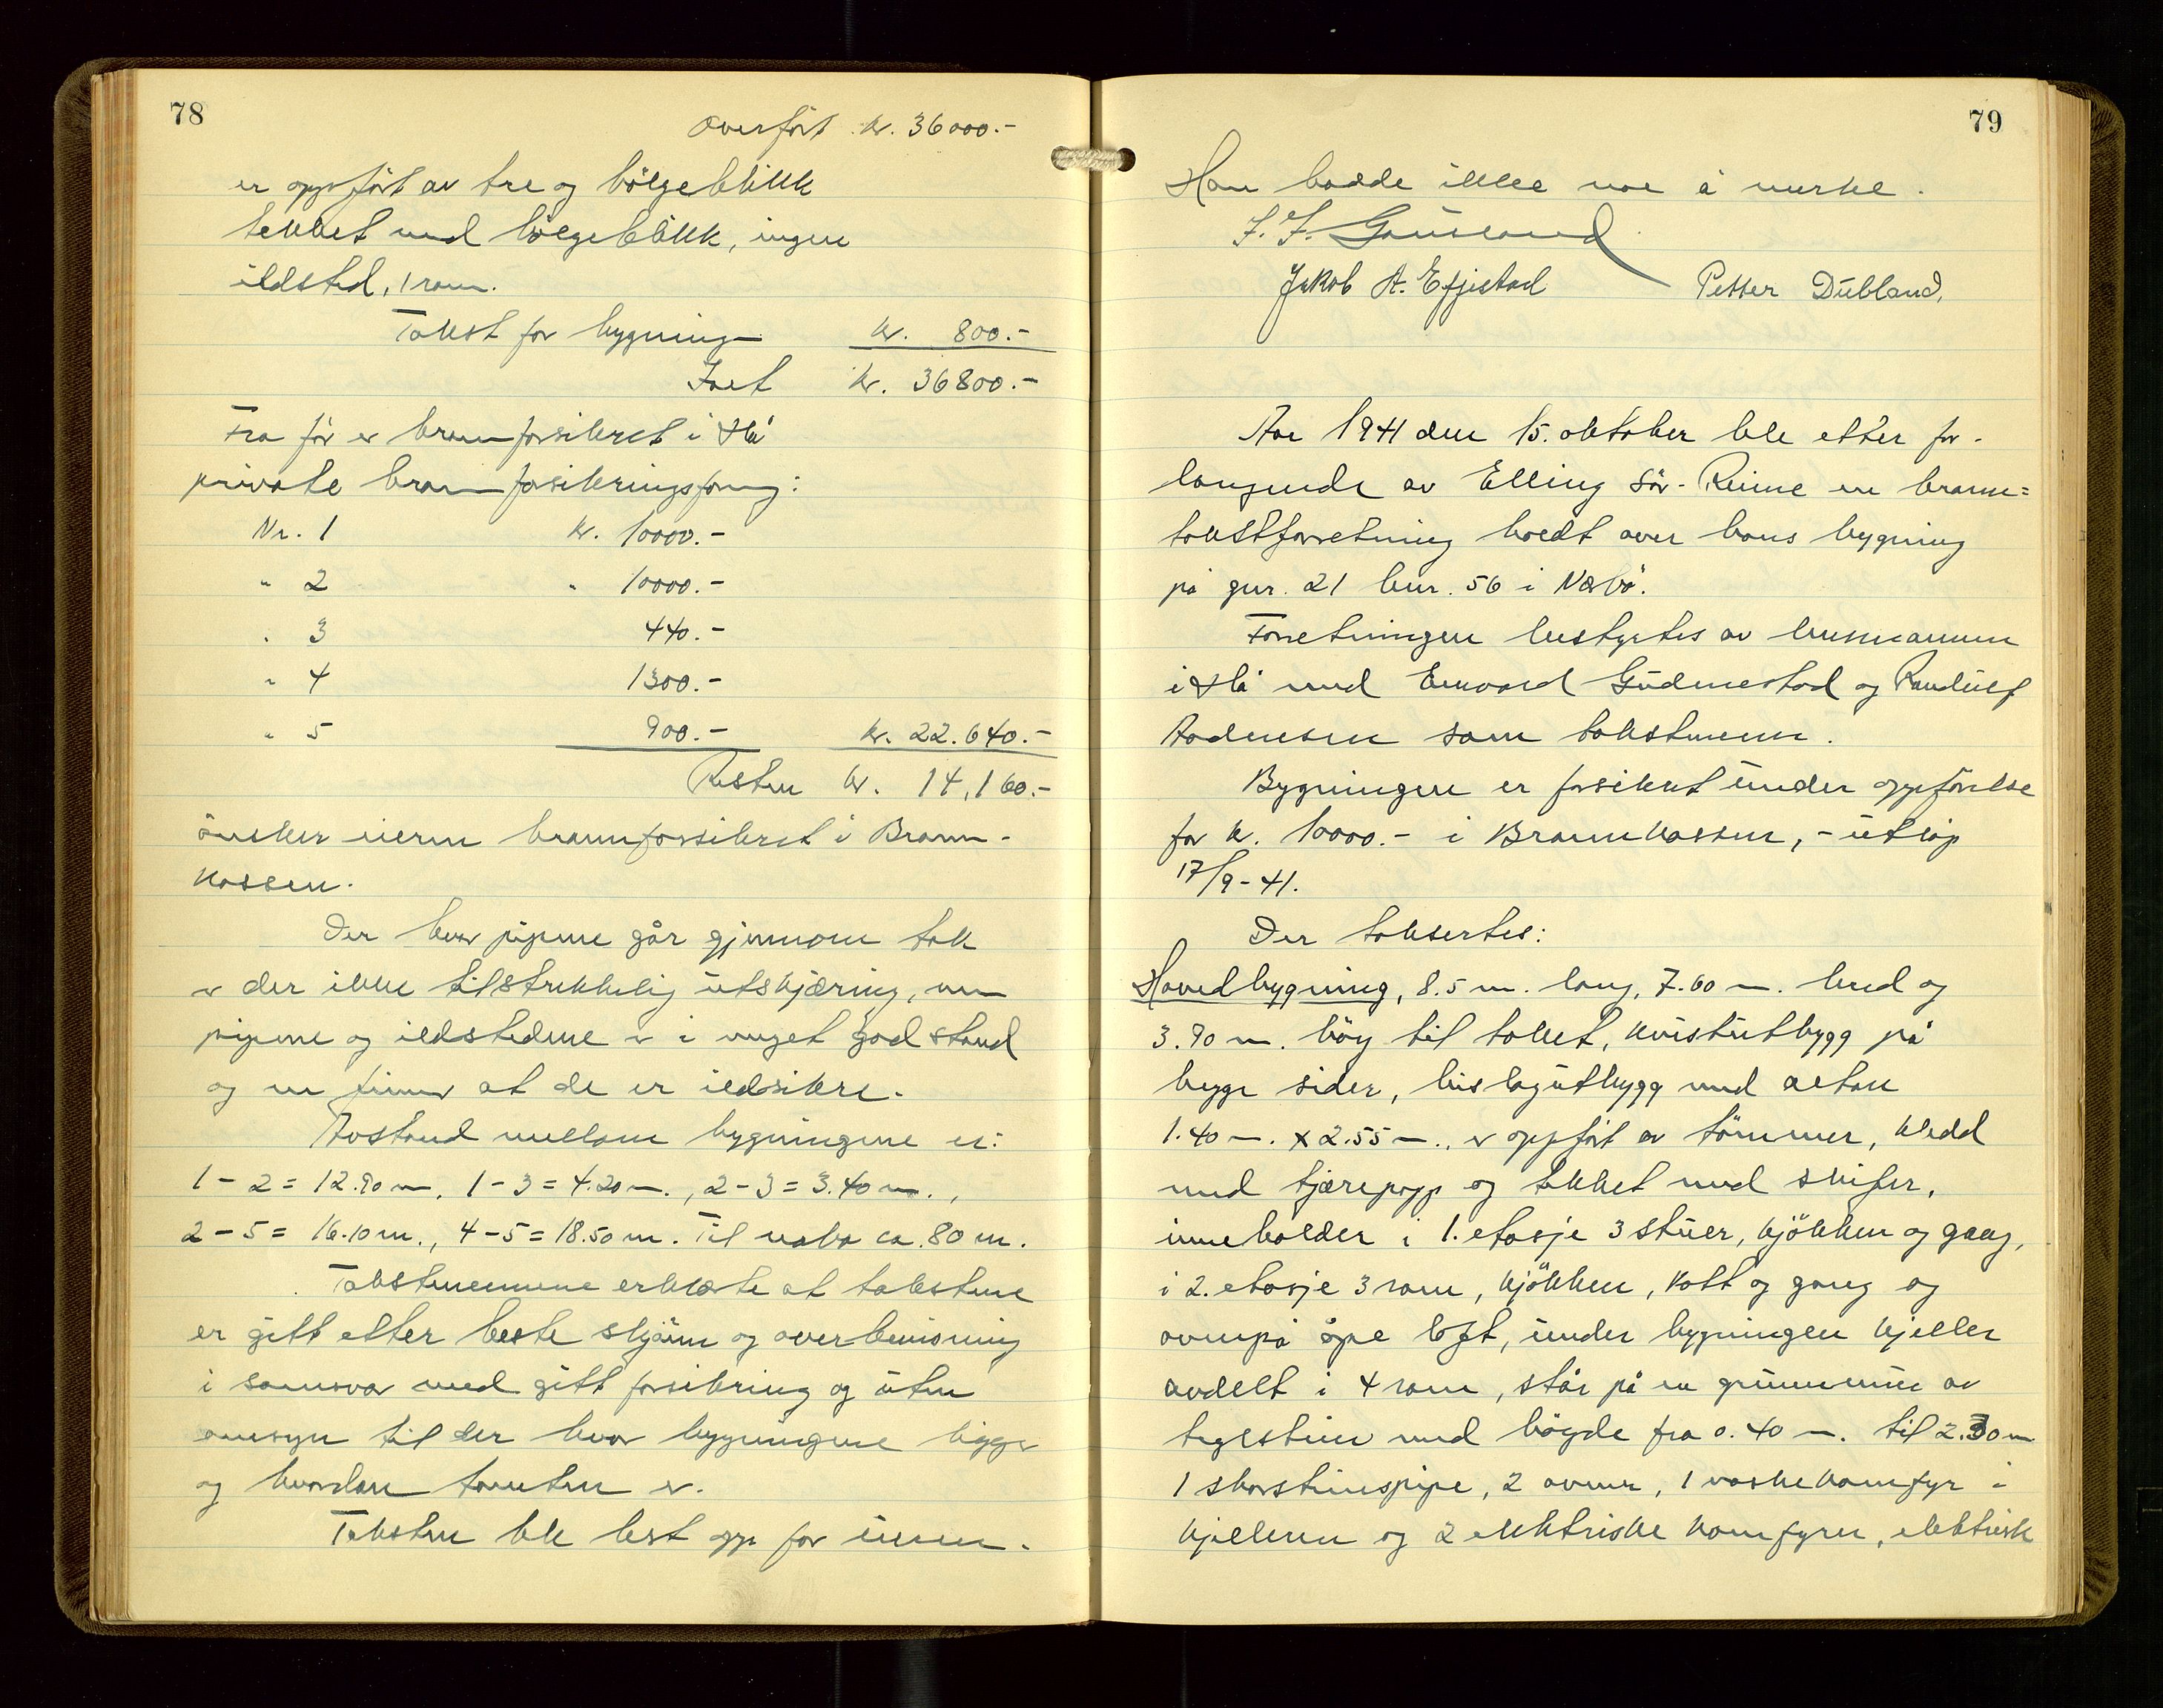 78
Overført kr. 36000.-
er oppført av tre og bölgeblikk
tekket med bölgeblikk, ingen
ildsted, 1 rom.
Takst for bygning kr. 800.-
Ialt kr. 36800.-
Fra før er brannforsikret i Hå
private brannforsikringsforng:
Nr. 1 kr. 10000.-
" 2 " 10000.-
" 3 440.-
" 4 1300.-
" 5 900.- kr. 22.640.-
Resten kr. 14,160.-
önsker eieren brannforsikret i Brann-
kassen.
Der hvor pipene går gjennom tak
er der ikke tilstrekkelig utskjæring, men
pipene og ildstedene er i meget god stand
og en finner at de er ildsikre.
Avstand mellom bygningene er:
1-2 = 12.90 m, 1-3 = 4.20 m., 2-3 = 3.40 m.,
2-5 = 16.10 m., 4-5 = 18.50 m. Til nabo ca. 80 m.
Takstmennene erklærte at takstene
er gitt etter beste skjönn og overbevisning
i samsvar med gitt forsikring og uten
omsyn til der hvor bygningene ligger
og hvordan tomten er.
Taksten ble lest opp for eieren.
79
Han hadde ikke noe å merke.
J. J. Gausland
Jakob A. Efjestad Petter Dubland,
Aar 1941 den 15. oktober ble etter for-
langende av Elling Sör-Reime en brann=
takstforretning holdt over hans bygning
på gnr. 21 bnr. 56 i Nærbö.
Forretningen bestyrtes av lensmannen
i Hå med Enevald Gudmestad og Randulf
Aadnesen som takstmenn.
Bygningen er forsikret under oppförelse
for kr. 10000.- i Brannkassen, - utløp
17/9-41.
Der takseretes:
Hovedbygning, 8.5 m. lang, 7.60 m. bred og
3.90 m. höy til taket, kvistutbygg på
begge sider, bislagutbygg med altan
1.40 m. x 2.55 m., er oppfört av tömmer, kledd
med tjærepapp og tekket med skifer,
inneholder i 1. etasje 3 stuer, kjökken og gang,
i 2. etasje 3 rom, kjökken, kott og gang og
ovenpå åpe loft, under bygningen kjeller
avdelt i 4 rom, står på en grunnmur av
teglstein med höyde fra 0.40 m. til 2.30 m
1 skorsteinspipe, 2 ovner, 1 vaskekomfyr i
kjelleren og 2 elektriske komfyrer, elektrisk